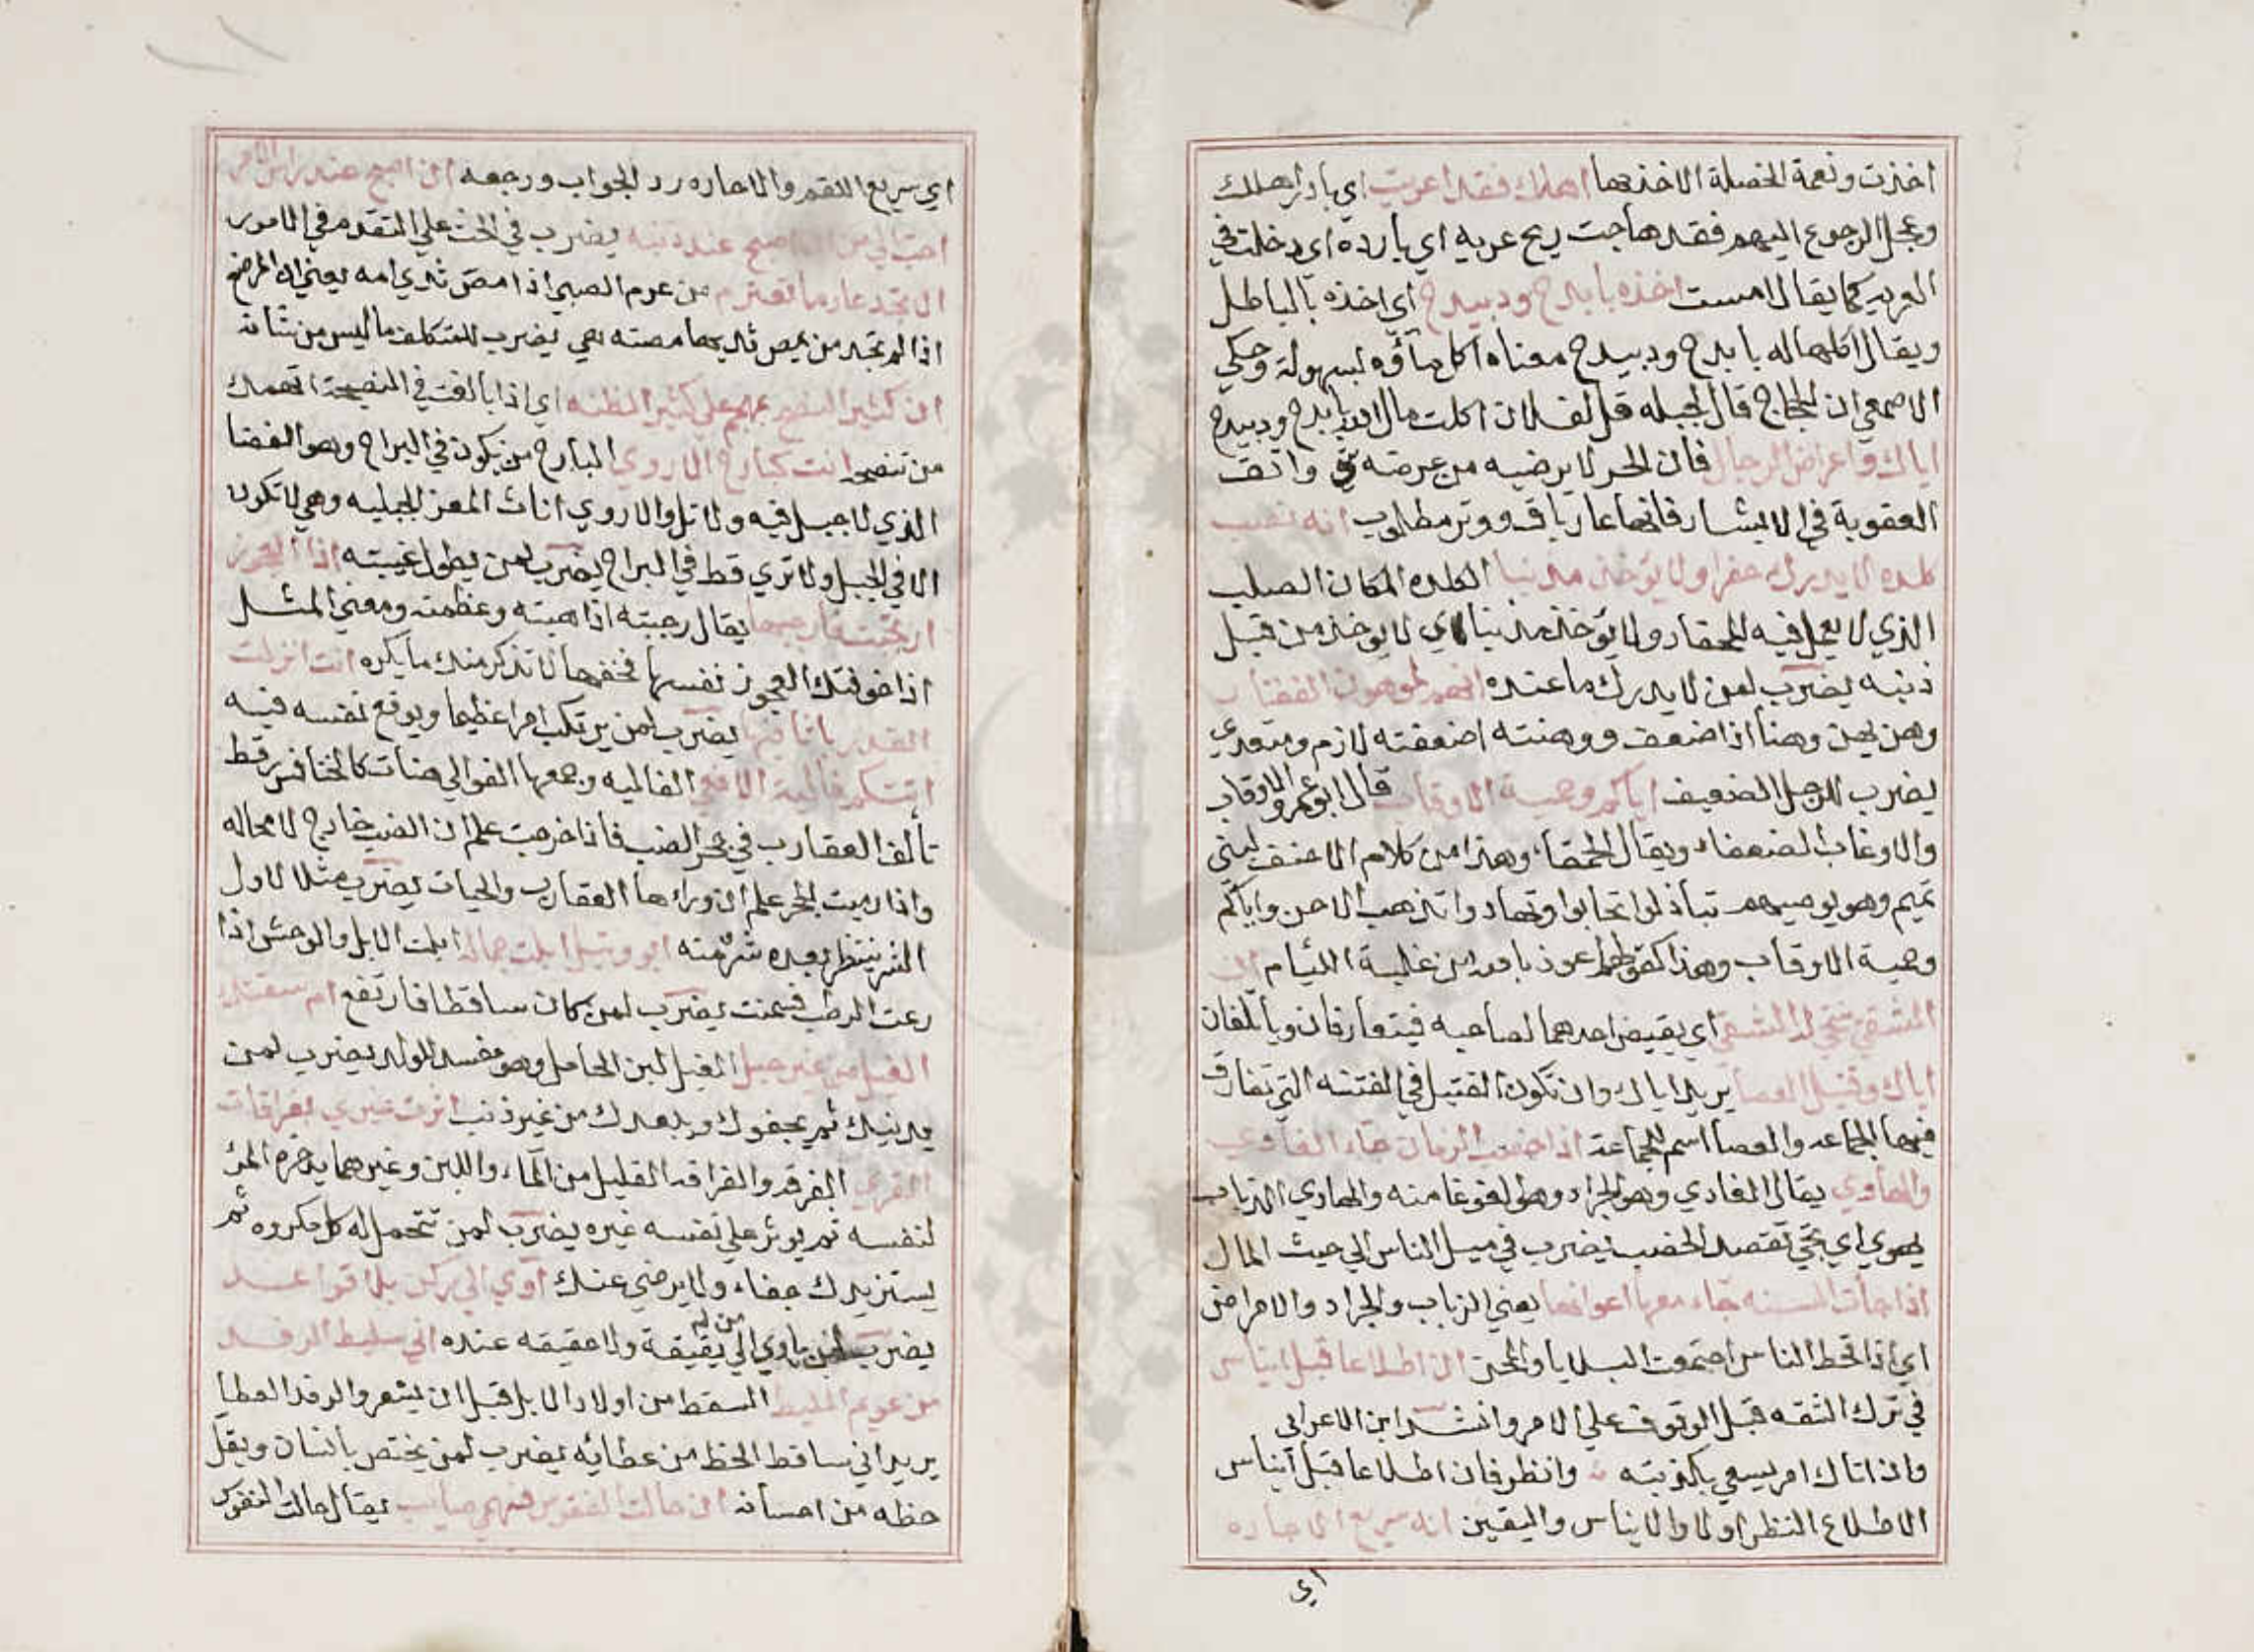 اخذت ونعمة الخصلة الاخذ بها اهلك فقد اعريت اي بادر اهلك
وعجل الرجوع اليهم فقد هاجت ريح عريه اي بارده اي دخلت في
العريه كما يقال امست اخذه بابدح ودبيدح اي اخذه بالباطل
ويقال اكل ماله بابدح ودبيدح معناه اكل ماله بسهولة وحكي
الاصمعي ان الحجاج قال لجبله قل لفلان اكلت مال الله بابدح ودبيدح
اياك واعراض الرجال فان الحر لا يرضيه من عرضه شي واتق
العقوبة في الابشار فانها عار باق ووتر مطلوب انه نصب
كلده لا يدرك حفرا ولا يؤخذ مذنبا الكلده المكان الصلب
الذي لا يعمل فيه المحفار ولا يؤخذ مذنبا اي لا يوخذ من قبل
ذنبه يضرب لمن لا يدرك ما عنده انهم لموهون الفقار
وهن يهن وهنا اذا ضعف ووهنته اضعفته لازم ومتعدي
يضرب للرجل الضعيف اياكم وحمية الاوقاب قال ابو عمرو الاوقاب
والاوغاب الضعفاء ويقال الحمقاء وهذا من كلام الاحنف لبني
تميم وهو يوصيهم تباذلوا تحابوا وتهادوا تذهب الاحن واياكم
وحمية الاوقاب وهذا كقولهم اعوذ بالله من غلبة اللئام ان
الشقي ينتحي له الشقي اي يقيض احدهما لصاحبه فيتعارفان ويأتلفان
اياك وقتيل العصا يريد اياك وان تكون القتيل في الفتنه التي تفارق
فيها الجماعه والعصا اسم للجماعة اذا اخصب الزمان جاء الغاوي
والهاوي يقال الغاوي وهو الجراد وهو الغوغا منه والهاوي الذباب
يهوي اي يجي تقصد الخصب يضرب في ميل الناس الي حيث المال
اذا جات السنه جاء معها اعوانها يعني الذباب والجراد والامراض
اي اذا قحط الناس اجتمعت البلايا والمحن ان اطلاعا قبل ايناس
في ترك الثقه قبل الوقوف علي الامر وانشد ابن الاعرابي
واذا اتاك امر يسعي بكذبته وانظر فان اطلاعا قبل ايناس
الاطلاع النظر اولا والايناس واليقين انه سريع الاحاره
اي
اي سريع اللقم والاحاره رد الجواب ورجعه ان اصبح عند راس الامر
احب الي من ان اصبح عند ذنبه يضرب في الحث علي التقدم في الامور
ان لا تجد عارما تعترم من عرم الصبي اذا مص ثدي امه يعني ان المرضع
اذا لم تجد من يمص ثديها مصته هي يضرب للمتكلف ما ليس من شانه
ان كثير النصح يهجم علي كثير الظنه اي اذا بالغت في النصيحة اتهمك
من تنصحه انت كبارح الاروي البارح من يكون في البراح وهو الفضا
الذي لا جبل فيه ولا تل والاروي اناث المعز الجبليه وهي لا تكون
الا في الجبل ولا تري قط في البراح يضرب لمن يطول غيبته اذا العجوز
ارتجبت فارجبها يقال رجبته اذا هبته وعظمته ومعني المثل
اذا خوفتك العجوز نفسها فخفها لا تذكر منك ما يكره انت انزلت
القدر باثافيها يضرب لمن يرتكب امرا عظيما ويوقع نفسه فيه
اتتكم فالية الافاعي الفاليه وجمعها الفوالي هنات كالخنافس رقط
تألف العقارب في جحر الضب فاذا خرجت علم ان الضب خارج لا محاله
واذا رميت الجحر علم ان وراءها العقارب والحيات يضرب مثلا لاول
الشر ينتظر بعده شر منه ابو وثيل ابلت جماله ابلت الابل والوحش اذا
رعت الرطب فسمنت يضرب لمن كان ساقطا فارتفع ام سقتك
الغيل من غير حبل الغيل لبن الحامل وهو مفسد للولد يضرب لمن
يدنيك ثم يجفوك ويبعدك من غير ذنب اثرت غيري بغراقات
القرب الغرقه والغراقه القليل من الماء واللبن وغيرهما يدخره المرء
لنفسه ثم يوثر علي نفسه غيره يضرب لمن تتحمل له كل مكروه ثم
يستزيدك جفاء ولا يرضي عنك آوي الي ركن بلا قواعد
يضرب لمن ياوي الي من له بقيقة ولا حقيقه عنده اني سليط الرفد
من عويم المليط السقط من اولاد الابل قبل ان يشعر والرفد العطا
يريد اني ساقط الحظ من عطائه يضرب لمن يختص بانسان ويقل
حظه من احسانه ان حالت القوس فسهمي صايب يقال حالت القوس